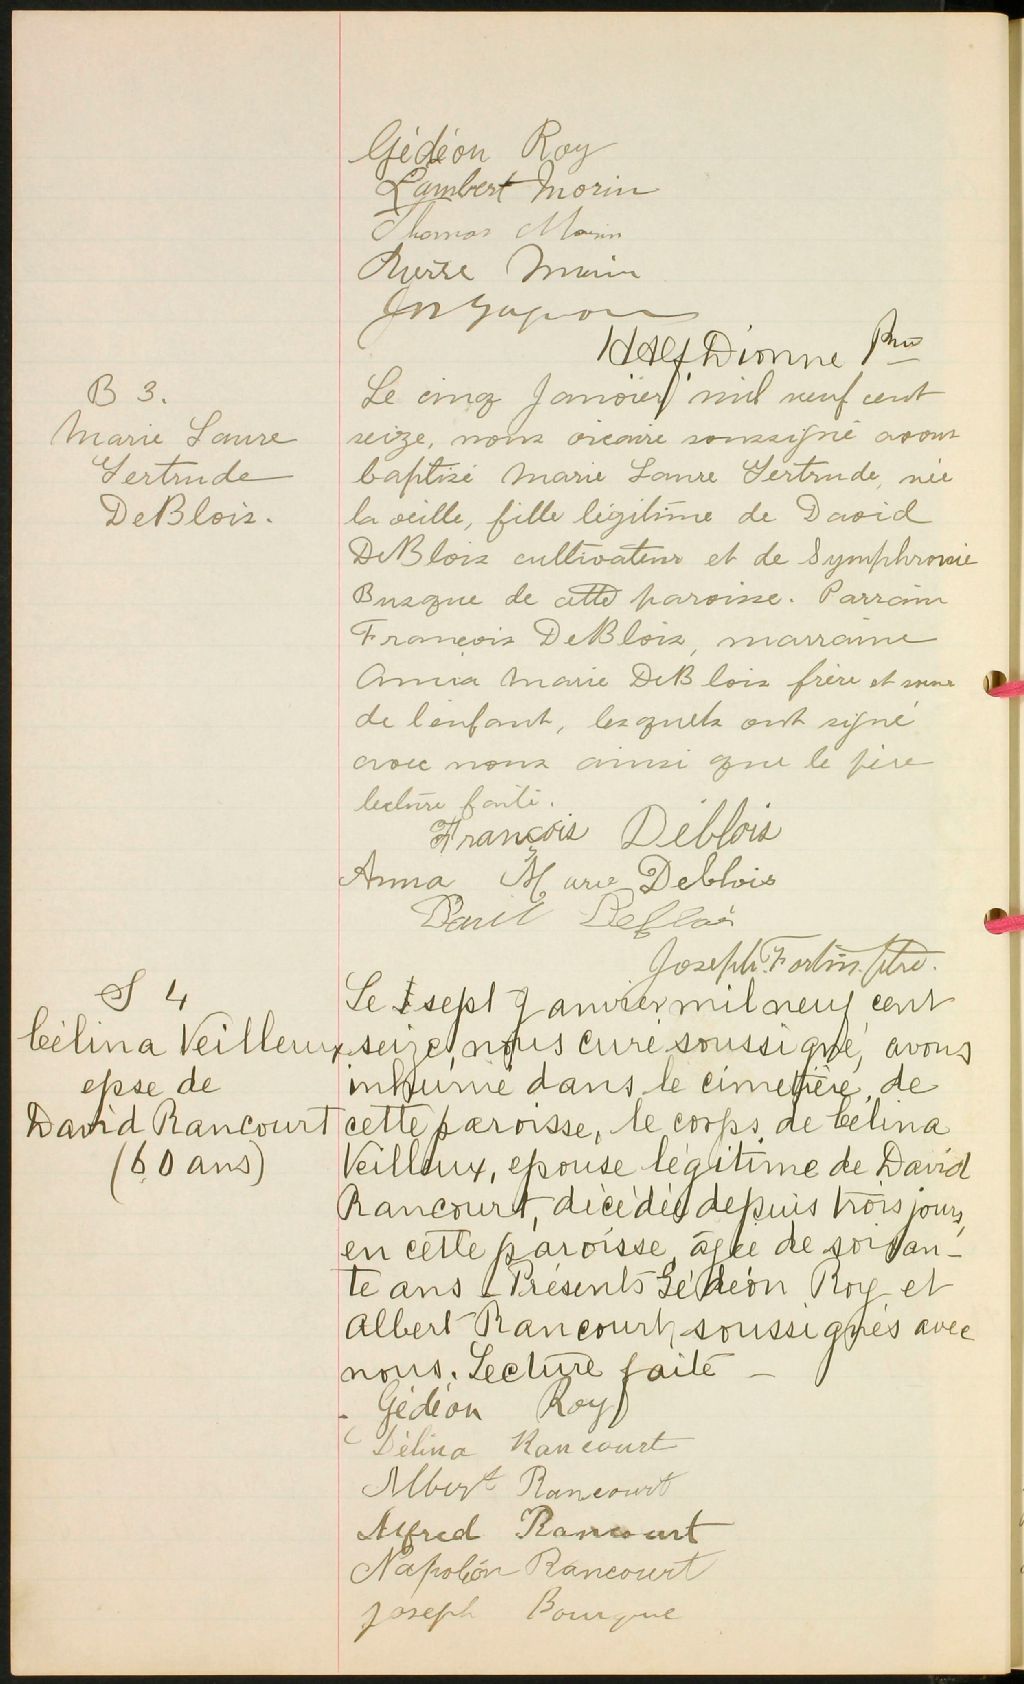 Gédéon Roy
Lambert Morin
Thomas Morin
Pierre Morin
Jn Gagnon
HAlf Dionne Ptre
B 3.
Marie Laure
Gertrude
DeBlois.
Le cinq Janvier mil neuf cent
seize, nous vicaire soussigné avons
baptisé Marie Laure Gertrude, née
la veille, fille légitime de David
DeBlois cultivateur et de Symphronie
Busque de cette paroisse. Parrain
François DeBlois, marraine
Anna Marie DeBlois frère et soeur
de l'enfant, lesquels ont signé
avec nous ainsi que le père
lecture faite.
François Déblois
Anna Marie Deblois
Deblois
Joseph Fortin ptre.
S 4
Célina Veilleux
epse de
David Rancourt
(60 ans)
Le sept Janvier mil neuf cent
seize, nous curé soussigné, avons
inhumé dans le cimetière, de
cette paroisse, le corps de Célina
Veilleux, epouse légitime de David
Rancourt, décédée depuis trois jours,
en cette paroisse, âgée de soixan-
te ans - Présents Gédéon Roy et
Albert Rancourt, soussignés avec
nous. Lecture faite -
Gédéon Roy
Délina Rancourt
Albert Rancourt
Alfred Rancourt
Napoléon Rancourt
Joseph Bourque